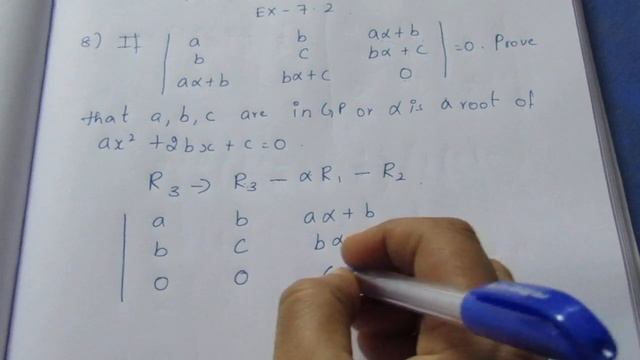 EX-7.2
8) If | a b aα+b | = 0. Prove
| b c bα+c |
| aα+b bα+c 0 |
that a, b, c are in GP or α is a root of
ax² + 2bx + c = 0.
R₃ → R₃ - αR₁ - R₂.
| a b aα+b
| b c bα
| 0 0